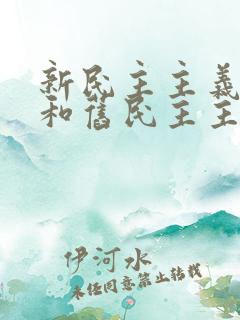 新民主主義
和舊民主主
伊河水
未经同意禁止转载